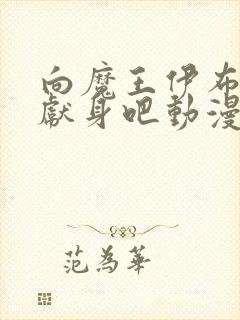 向魔王伊布
獻身吧動漫
范為華